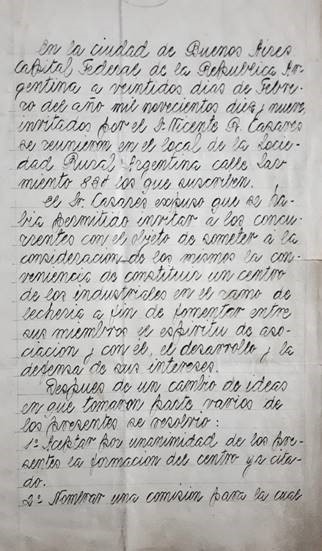 En la ciudad de Buenos Aires
Capital Federal de la Republica Ar-
gentina a veintidos dias de Febre-
ro del año mil novecientos diez y nueve
invitados por el Sr. Vicente R. Casares
se reunieron en el local de la Socie-
dad Rural Argentina calle Sar-
miento 834 los que suscriben.
El Sr. Casares expuso que se ha-
bia permitido invitar a los concu-
rrentes con el objeto de someter á la
consideracion de los mismos la con-
veniencia de constituir un centro
de los industriales en el ramo de
lecheria a fin de fomentar entre
sus miembros el espiritu de aso-
ciacion y con él, el desarrollo y la
defensa de sus intereses.
Despues de un cambio de ideas
en que tomaron parte varios de
los presentes se resolvio:
1º Aceptar por unanimidad de los pre-
sentes la formacion del centro ya cita-
do.
2º Nombrar una comision para la cual